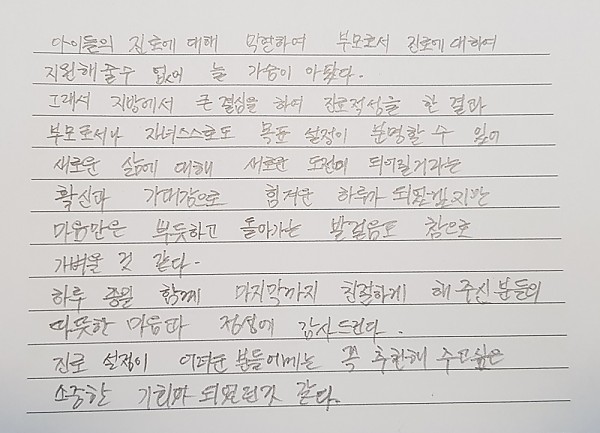 아이들의 진로에 대해 막연하여 부모로서 진로에 대하여
지원해 줄수 없어 늘 가슴이 아팠다.
그래서 지방에서 큰 결심을 하여 진로적성을 한 결과
부모로서나 자녀스스로도 목표 설정이 분명할 수 있어
새로운 삶에 대해 새로운 도전이 되어질거라는
확신과 기대감으로 힘겨운 하루가 되었겠지만
마음만은 뿌듯하고 돌아가는 발걸음도 참으로
가벼울 것 같다.
하루 종일 함께 마지막까지 친절하게 해 주신 분들의
따뜻한 마음과 정성에 감사드린다.
진로 설정이 어려운 분들에게는 꼭 추천해 주고싶은
소중한 기회가 되었던것 같다.